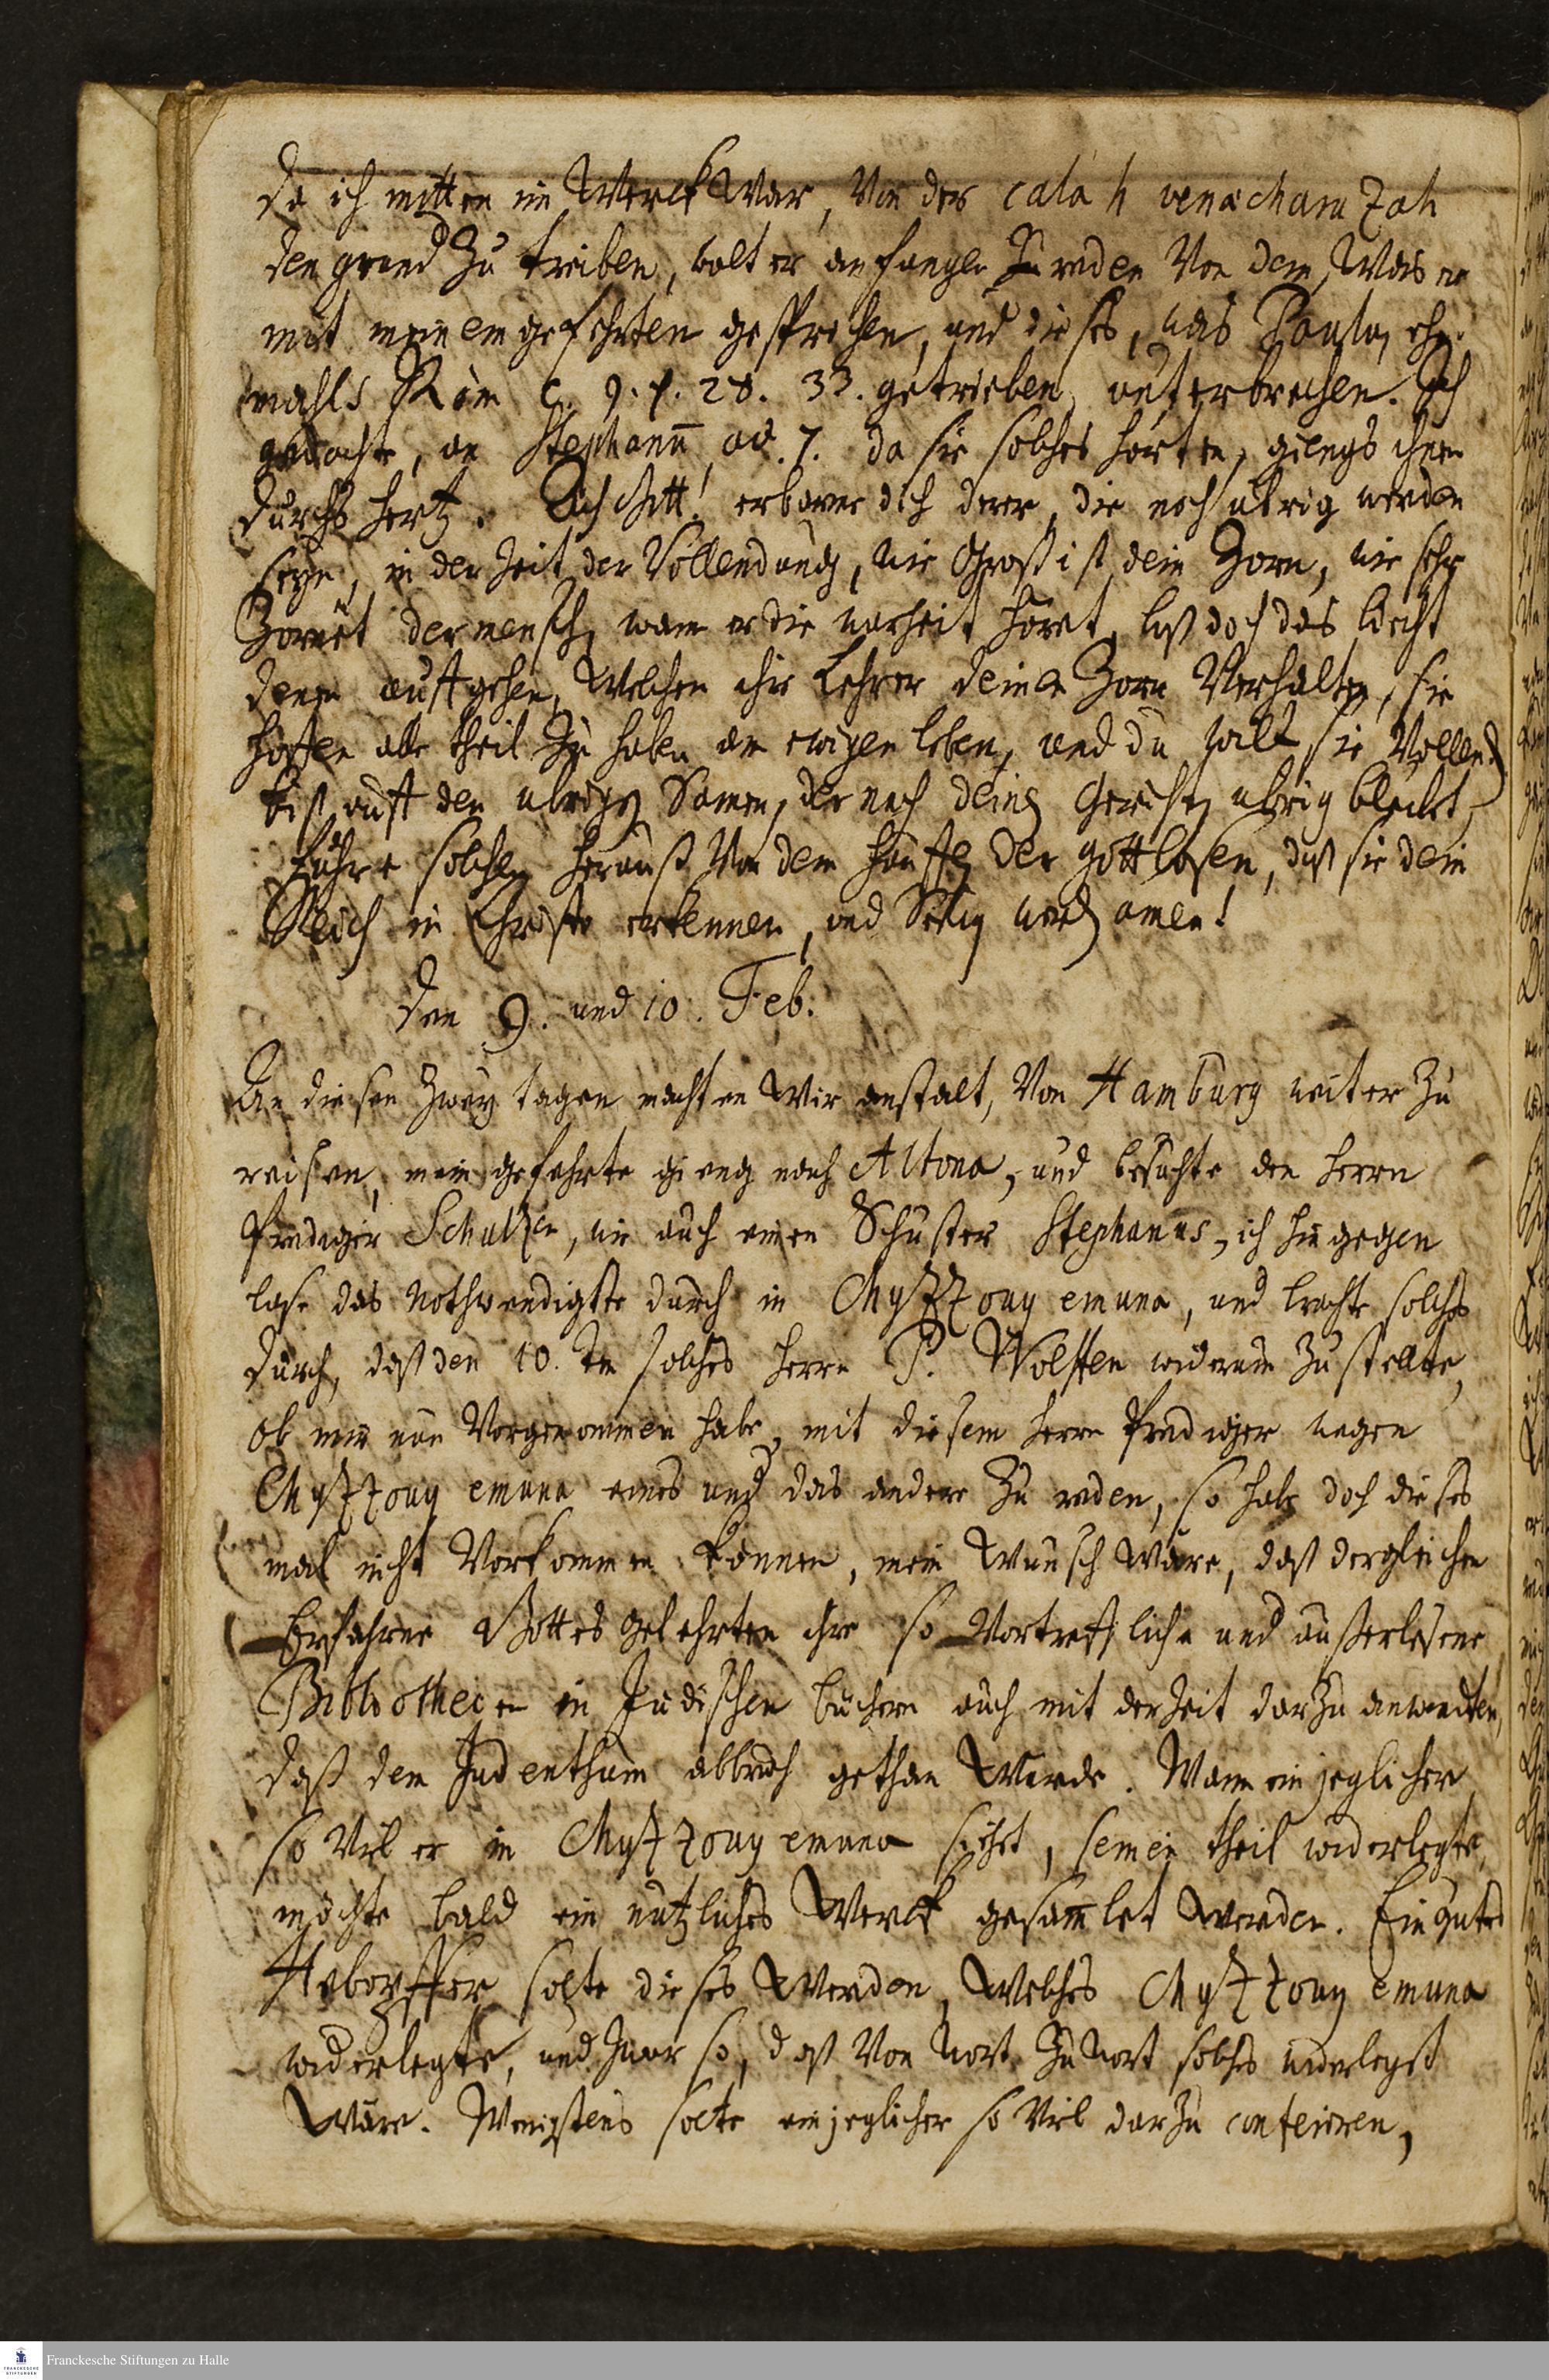 Da ich mitten im Werck War, Von der cala h venæcharazah
den grund Zu treiben, wolt er anfangen Zu reden Von dem, Was er
mit meinem gefehrten gesprochen, und dieses, was Paulus ehe-
mahls Röm C. 9. p. 28. 33. getrieben, unterbrechen. Ich
gedachte, an Stephanū act. 7. da sie solches hörten, giengs ihnen
durchs Hertz. Ach Gott! erbarme dich derer, die noch ubrig werden
seyn, in der Zeit der Vollendung, wie Groß ist dein Zorn, wie sehr
Zörnet der mensch, wann er die warheit höret, laß doch das Liecht
denen auffgehen, Welchen ihre Lehrer deinen Zorn Verhalten, sie
hoffen alle theil Zu haben am ewigen leben, und du wilt sie Vollend
biß auff den ubrigen Samen, der nach deinen Gerichten ubrig bleibt,
führe solchen herauß Von dem hauffen der gottlosen, daß sie dein
Reich in Christo erkennen, und Seelig werden amen!
Den 9. und 10. Feb.
An diesen Zwey tagen machten Wir anstalt, Von Hamburg weiter Zu
reisen, mein gefehrte gieng nach Altona, und besuchte den Herrn
Prediger Schultzen, wie auch einen Schuster Stephanus, ich hingegen
lase das Nothwendigste durch in Chyzzouq emuna, und brachte solches
durch, daß den 10. ten solches Herrn P. Wolffen widerum Zustellte,
ob mir nun Vorgenommen habe, mit diesem Herrn Prediger wegen
Chyzzouq emuna eines und das andere Zu reden, so habe doch dieses
mal nicht Vorkommen können, mein Wunsch Wäre, daß dergleichen
Erfahrne Gottes Gelehrten ihre so Vortreffliche und außerlesene
Bibliothecen in Judischen büchern auch mit der Zeit darZu anwendten,
daß dem Judenthum abbruch gethan Wurde. Wann ein jeglicher
so Viel er in Chyzzouq emuna sihet, seinen theil widerlegte,
möchte bald ein nutzliches Werck gesam̄let Werden. Ein gutes
solte dieses Werden, Welches Chyzzouq emuna
widerlegte, und Zwar so, daß Von wort Zu wort solches widerlegt
Wäre. Wenigstens solte ein jeglicher so Viel darZu conferiren,
Franckesche Stiftungen zu Halle
FRANCKESCHE
STIFTUNGEN